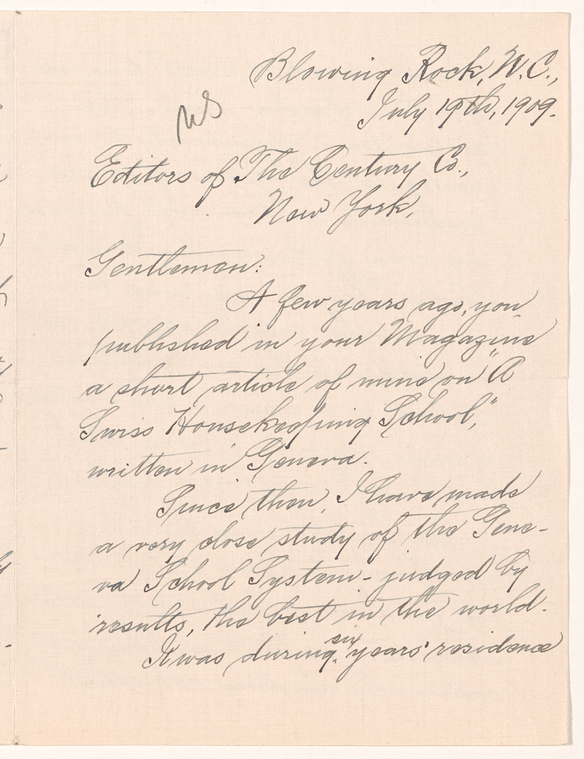 Blowing Rock, N.C.,
July 19th, 1909.
Editors of The Century Co.,
New York,
Gentlemen:
A few years ago, you
published in your Magazine
a short article of mine on "A
Swiss Housekeeping School,"
written in Geneva.
Since then, I have made
a very close study of the Gene-
va School System - judged by
results, the best in the world.
It was during six years' residence